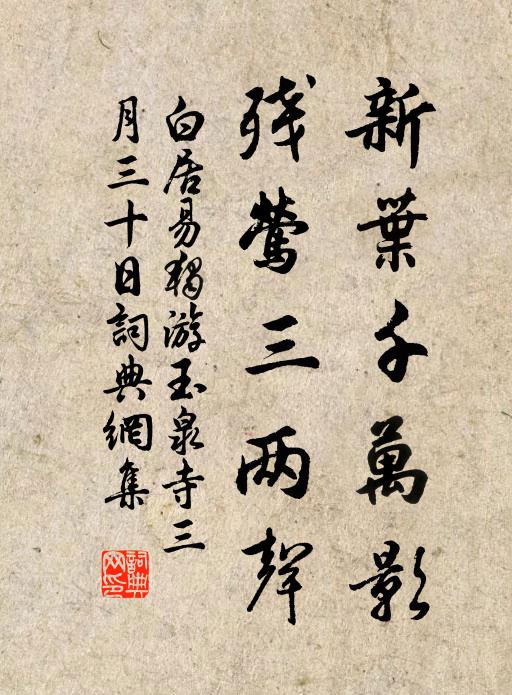 新葉千萬影
残鶯三两聲
白居易獨游玉泉寺三
月三十日詞典網集
詞典網印